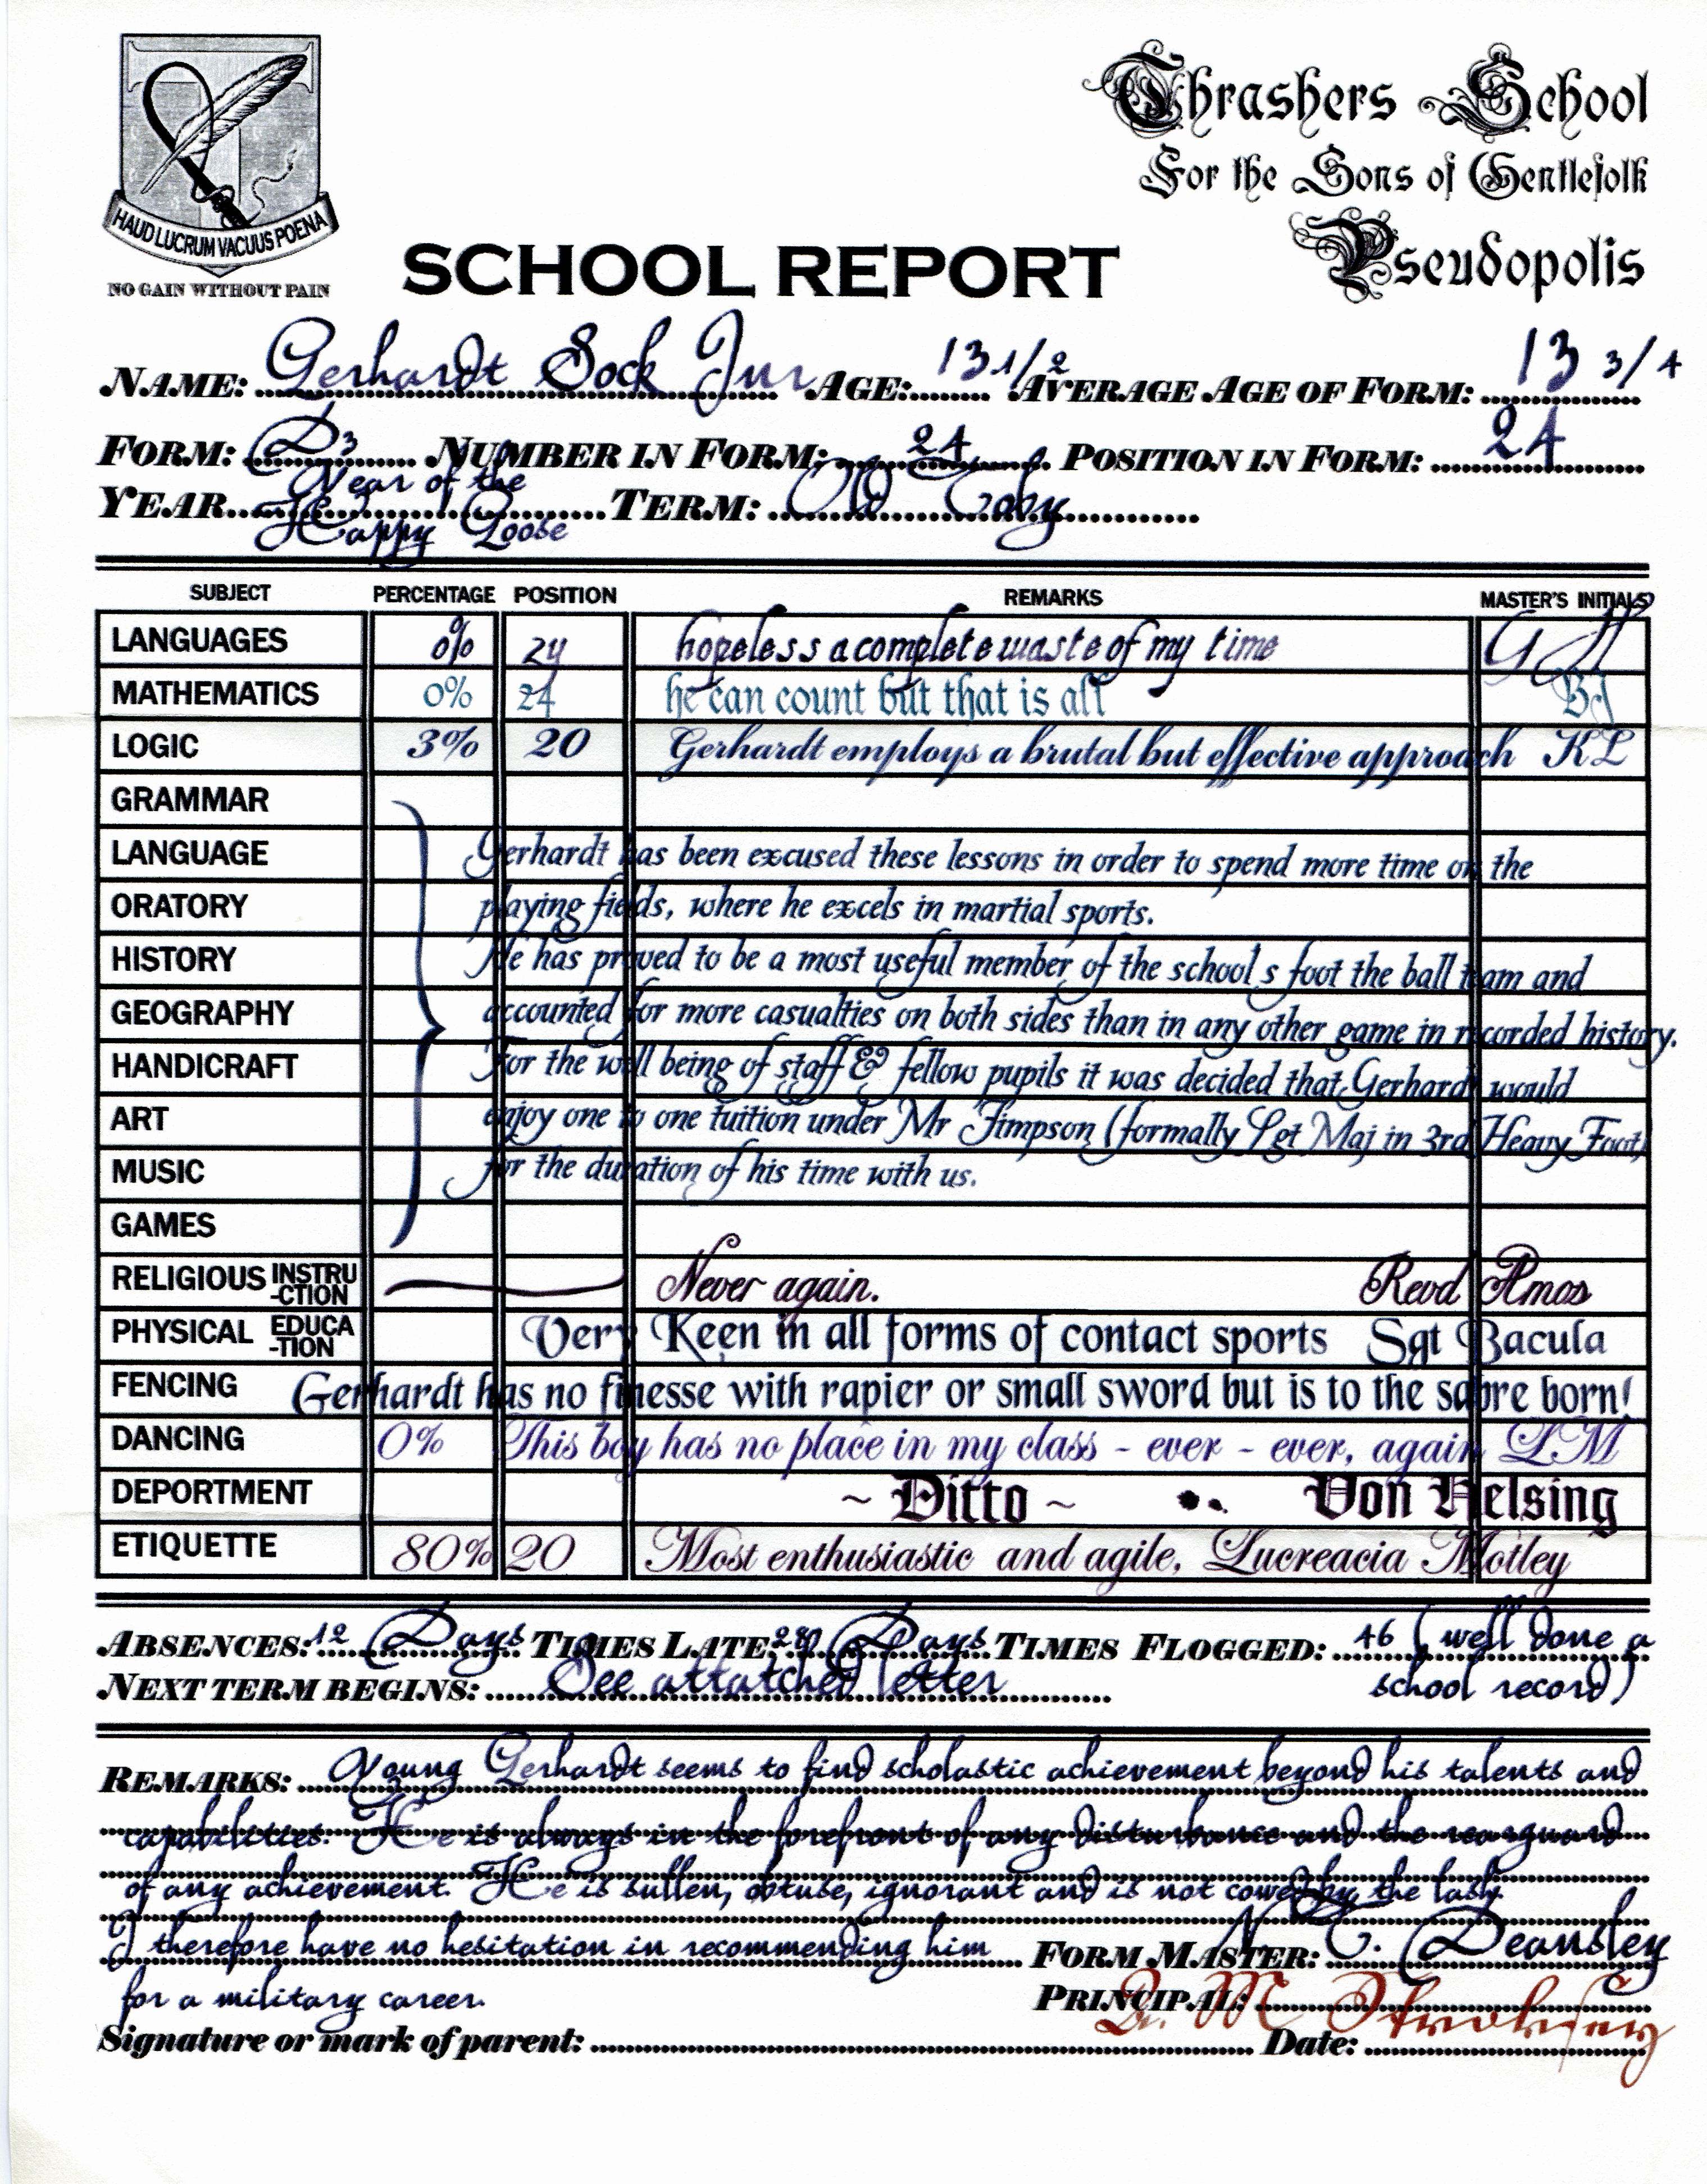 Thrashers School
For the Sons of Gentlefolk
Pseudopolis
HAUD LUCRUM VACUUS POENA
NO GAIN WITHOUT PAIN
SCHOOL REPORT
NAME: Gerhardt Sock Jnr AGE: 13 1/2 AVERAGE AGE OF FORM: 13 3/4
FORM: D3 NUMBER IN FORM: 24 POSITION IN FORM: 24
YEAR Year of the Happy Goose TERM: Old Toby
SUBJECT PERCENTAGE POSITION REMARKS MASTER'S INITIALS
LANGUAGES 0% 24 hopeless a complete waste of my time
MATHEMATICS 0% 24 he can count but that is all BJ
LOGIC 3% 20 Gerhardt employs a brutal but effective approach KL
GRAMMAR
LANGUAGE Gerhardt has been excused these lessons in order to spend more time on the
ORATORY playing fields, where he excels in martial sports.
HISTORY He has proved to be a most useful member of the school s foot the ball team and
GEOGRAPHY accounted for more casualties on both sides than in any other game in recorded history.
HANDICRAFT For the well being of staff & fellow pupils it was decided that Gerhardt would
ART enjoy one to one tuition under Mr Jimpson (formally Sgt Maj in 3rd Heavy Foot)
MUSIC for the duration of his time with us.
GAMES
RELIGIOUS INSTRU-CTION Never again. Revd Amos
PHYSICAL EDUCA-TION Very Keen in all forms of contact sports Sgt Bacula
FENCING Gerhardt has no finesse with rapier or small sword but is to the sabre born!
DANCING 0% This boy has no place in my class - ever - ever, again LM
DEPORTMENT ~ Ditto ~ Von Helsing
ETIQUETTE 80% 20 Most enthusiastic and agile, Lucreacia Motley
ABSENCES: 12 Days TIMES LATE: Days TIMES FLOGGED: 46 (well done a
school record)
NEXT TERM BEGINS: See attatched letter
REMARKS: Young Gerhardt seems to find scholastic achievement beyond his talents and
capabilities. He is always in the forefront of any disturbance and the rearguard
of any achievement. He is sullen, obtuse, ignorant and is not cowed by the lash.
I therefore have no hesitation in recommending him
for a military career.
FORM MASTER: N. C. Deansley
PRINCIPAL: Dr. M
Signature or mark of parent: Date: